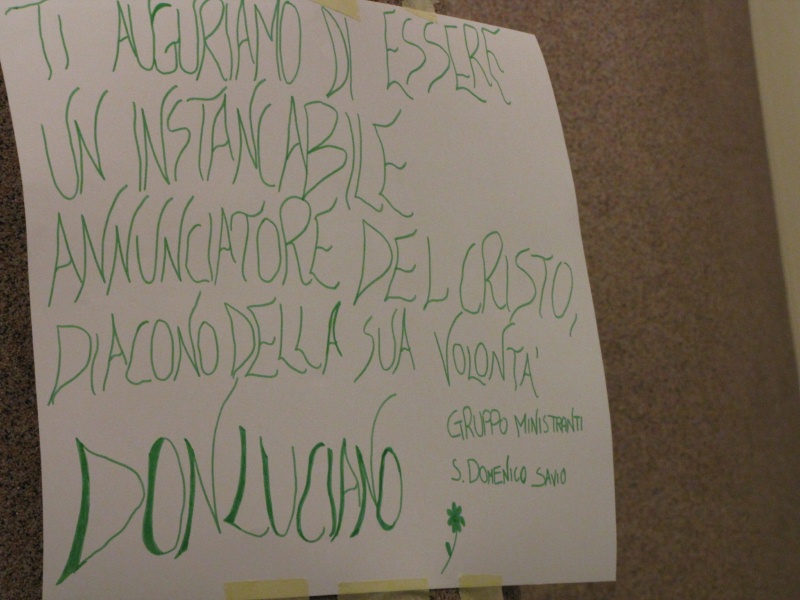 TI AUGURIAMO DI ESSERE
UN INSTANCABILE
ANNUNCIATORE DEL CRISTO,
DIACONO DELLA SUA VOLONTA'
DON LUCIANO
GRUPPO MINISTRANTI
S. DOMENICO SAVIO